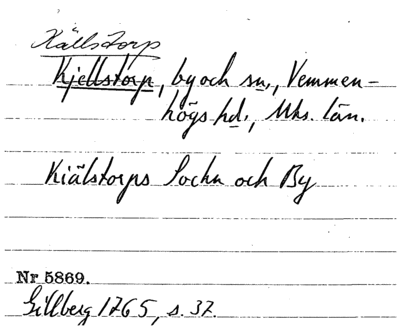 Källstorp
Kjellstorp, by och sn., Vemmen-
högs hd., Mhs. län.
Kiälstorps Sockn och By
Nr 5869.
Gillberg 1765, s. 37.